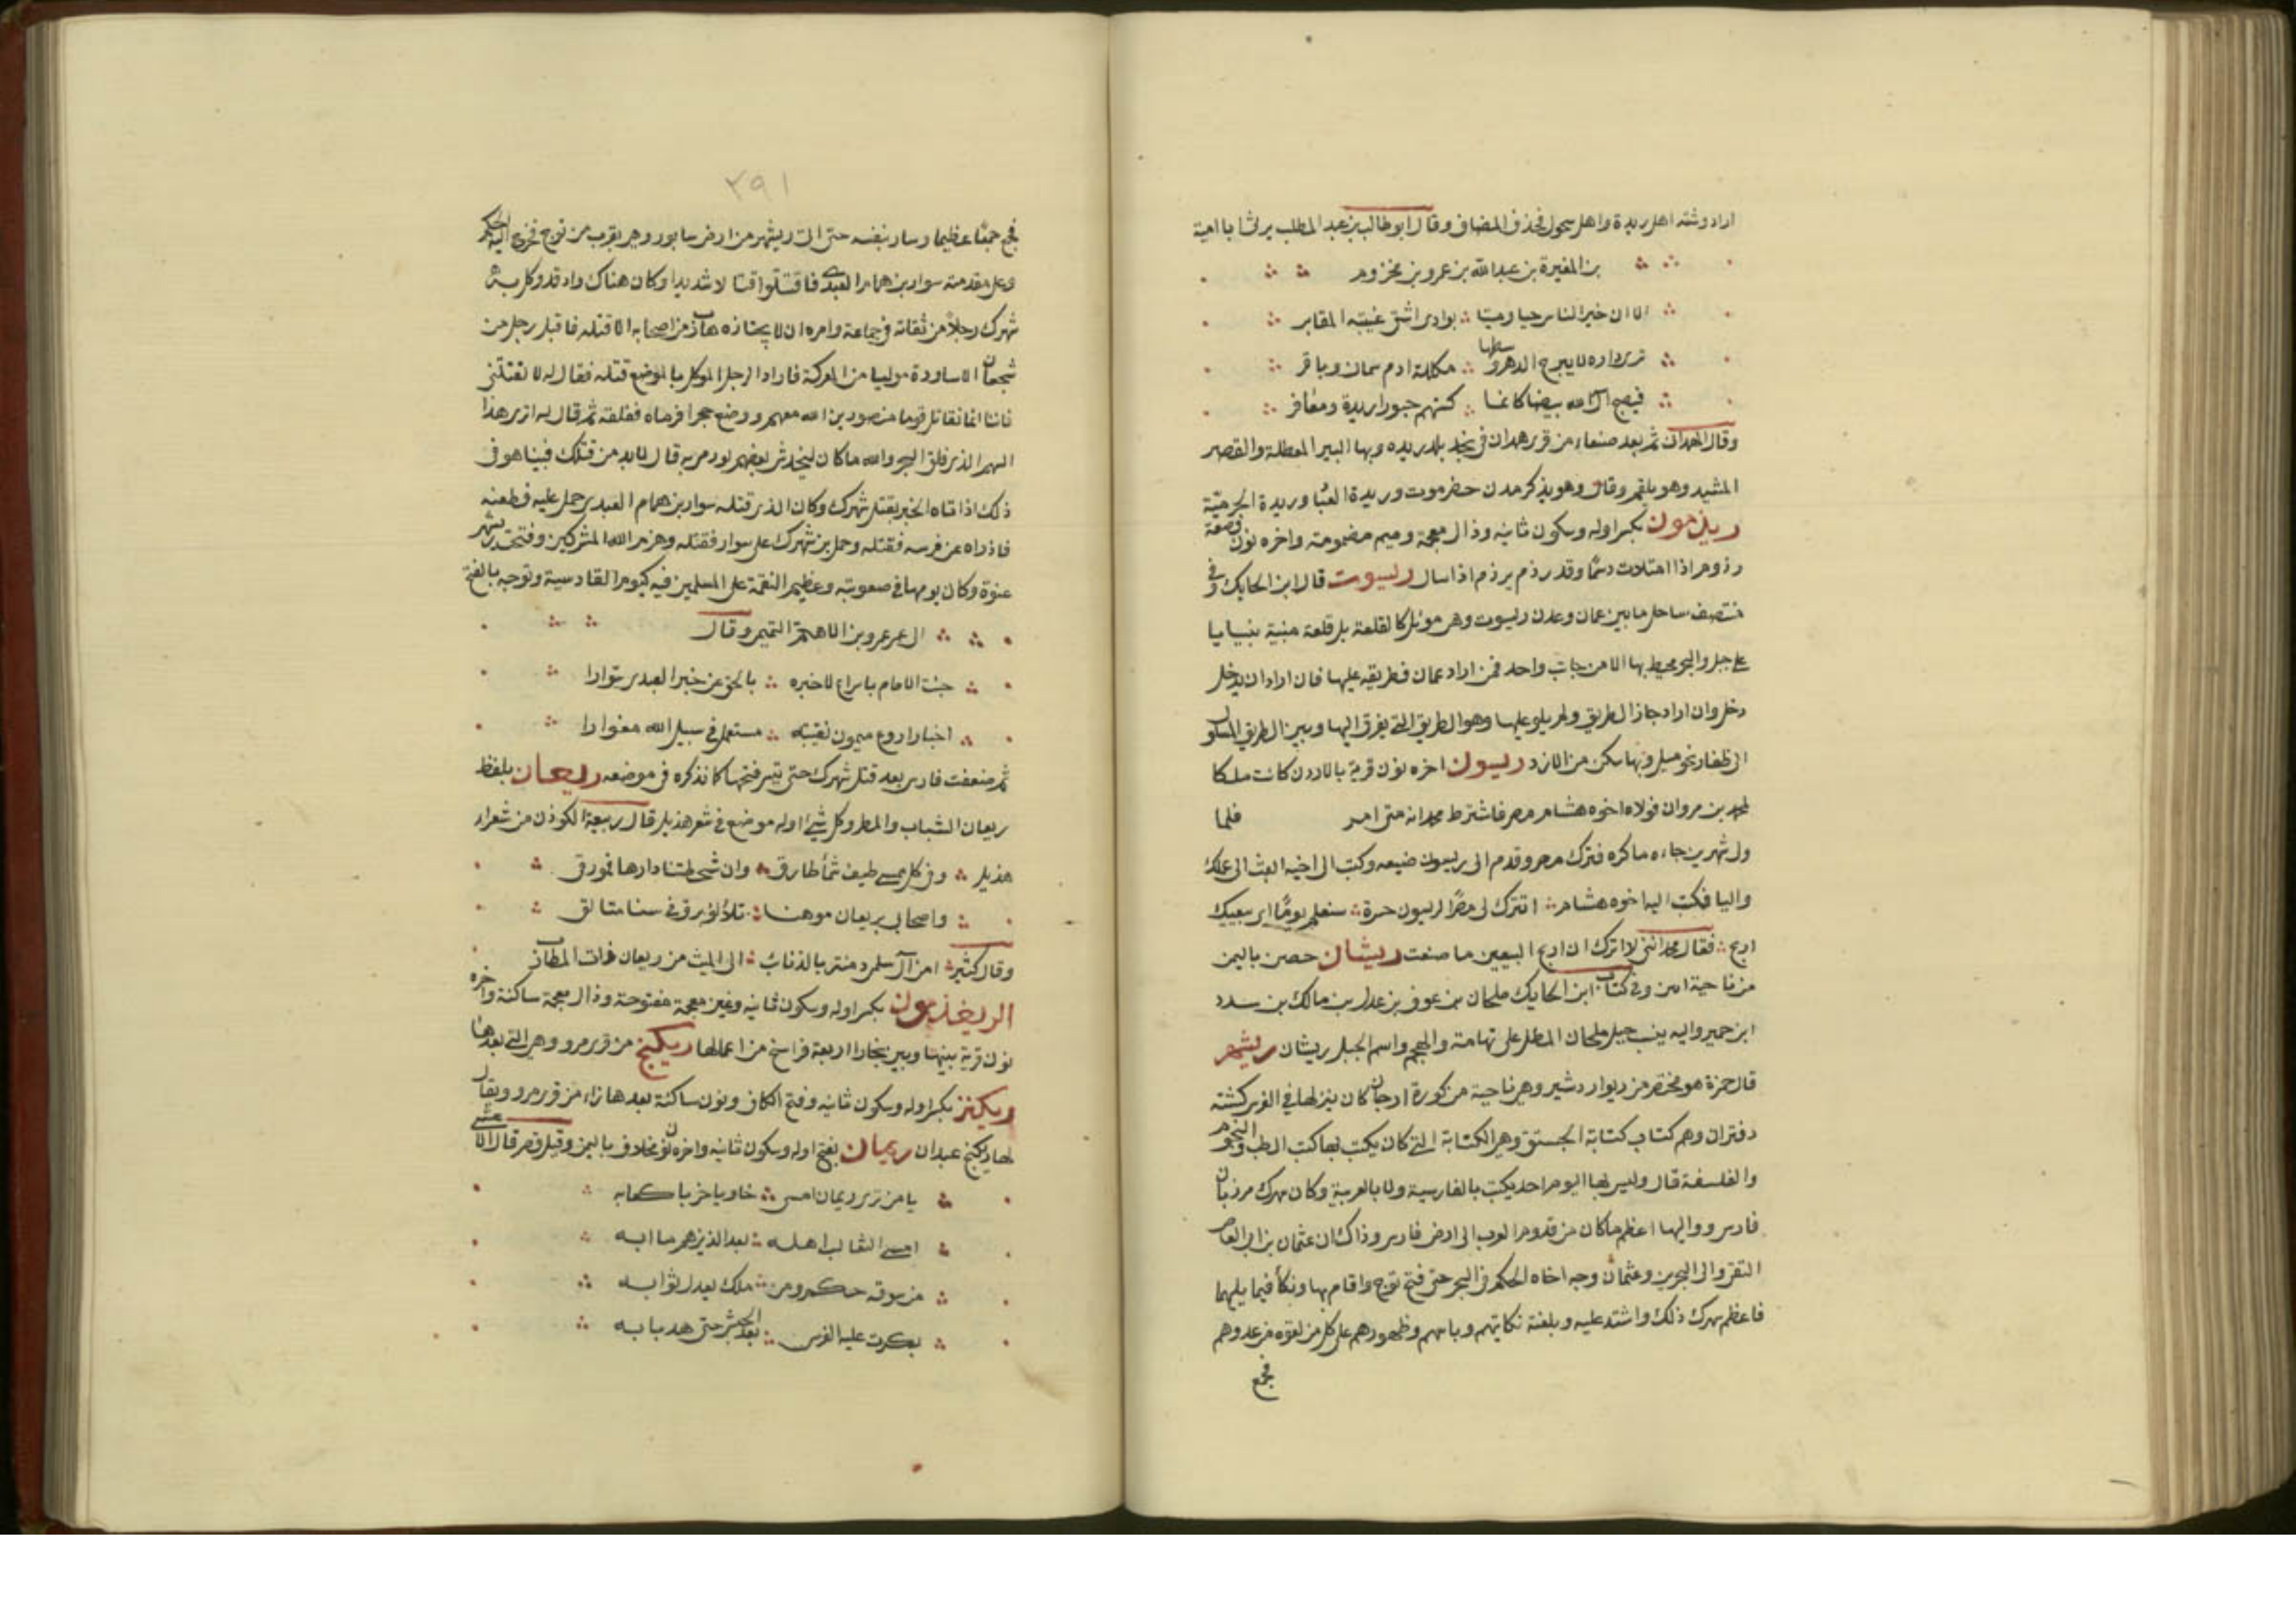 اراد وشته اهل ريدة واهل سحول فحذف المضاف وقال ابو طالب بن عبد المطلب يرثي ابا امية
بن المغيرة بن عبد الله بن عمرو بن مخزوم
الا ان خير الناس حيا وميتا بوادي اشي غيبته المقابر
ترى داره لا يبرح الدهر وسطها مكللة ادم سمان وباقر
فيصبح آل الله بيضا كانما كستهم حبورا ريدة ومعافر
وقال الهمداني ثم بعد صنعاء من قرى همدان في نجد بلد ريده وبها البير المعطلة والقصر
المشيد وهو تلقم وقال وهو يذكر مدن حضرموت وريدة العباد وريدة الحرمية
ريذمون بكسر اوله وسكون ثانيه وذال معجمة وميم مضمومة واخره نون قصعة
رذوم اذا امتلات دسما وقد رذم يرذم اذا سال ريسوت قال ابن الحايك وفي
منتصف ساحل ما بين عمان وعدن ريسوت وهي موئل كالقلعة بل قلعة مبنية بنيانا
على جبل والبحر محيط بها الا من جانب واحد فمن اراد عمان فطريقه عليها فان اراد ان يدخل
دخل وان اراد جاز الطريق ولم يلو عليها وهو الطريق التي يفرق اليها وبين الطريق المسلوك
الى ظفار نحو ميل وبها سكن من الازد ريسون اخره نون قرية بالاردن كانت ملكا
لمحمد بن مروان فولاه اخوه هشام مصر فاشترط محمد انه متى امر فلما
ولى شهرين جاءه ما كره فترك مصر وقدم الى ريسون ضيعه وكتب الى اخيه ابعث الى عملك
واليا فكتب اليه اخوه هشام اتترك لي مصرا لريسون حسرة ستعلم يوما اي بيعيك
اربح فقال محمد انني لا اترك ان اربح البيعين ما صنعت ريشان حصن باليمن
من ناحية ابين وفي كتاب ابن الحايك ملحان بن عوف بن عدي بن مالك بن سدد
ابن حمير واليه ينسب جبل ملحان المطل على تهامة والمهجم واسم الجبل ريشان ريشهر
قال حمزة هو مختصر من ريوا ردشير وهي ناحية من كورة ارجان كان ينزلها في الفرس كشته
دفتران وهم كتاب كتابة الجستق وهي الكتابة التي كان يكتب بها كتب الطب والنجوم
والفلسفة قال وليس بها اليوم احد يكتب بالفارسية ولا بالعربية وكان سهرك مرزبان
فارس وواليها اعظم ما كان من قدوم العرب الى ارض فارس وذاك ان عثمان بن ابي العاص
الثقفي والي البحرين وعثمان وجه اخاه الحكم في البحر حتى فتح توج واقام بها ونكأ فيما يليها
فاعظم سهرك ذلك واشتد عليه وبلغته نكايتهم وباسهم وظهورهم على كل من لقوه من عدوهم
فجمع
٢٩١
فجمع جمعا عظيما وسار بنفسه حتى اتى ريشهر من ارض سابور وهي بقرب من توج فخرج اليه الحكم
وعلى مقدمته سوار بن همام العبدي فاقتتلوا قتالا شديدا وكان هناك واد قد وكل به
شهرك رجلا من ثقاته في جماعة وامره ان لا يجتازه هارب من اصحابه الا قتله فاقبل رجل من
شجعان الاساورة موليا من المعركة فاراد الرجل الموكل بالموضع قتله فقال له لا تقتلني
فاننا انما نقاتل قوما منصورين الله معهم ووضع حجرا فرماه ففلقه ثم قال له اترى هذا
السهم الذي فلق الحجر والله ما كان ليخدش بعضهم لو رمي به قال لا بد من قتلك فبينا هو في
ذلك اذ اتاه الخبر بقتل شهرك وكان الذي قتله سوار بن همام العبدي حمل عليه فطعنه
فاذراه عن فرسه فقتله وحمل بن شهرك على سوار فقتله وهزم الله المشركين وفتحت ريشهر
عنوة وكان يومها في صعوبته وعظيم النقمة على المسلمين فيه كيوم القادسية وتوجه بالفتح
الى عمر عمرو بن الاهتم التميمي وقال
جئت الامام باسراع لاخبره بالحق عن خبر العبدي سوارا
اخبار اروع ميمون نقيبته مستعمل في سبيل الله مغوارا
ثم ضعفت فارس بعد قتل شهرك حتى تيسر فتحها كما نذكره في موضعه ريعان بلفظ
ريعان الشباب والمطر وكل شيء اوله موضع في شعر هذيل قال ربيعة الكوذن من شعراء
هذيل وفي كل ممسى طيف شماء طارق وان شحطتنا دارها فمورقي
واصحابي بريعان موهنا تلألؤ برق في سنا متالق
وقال كثير امن آل سلمى دمنة بالذنائب الى الميث من ريعان ذات المطارب
الريغذمون بكسر اوله وسكون ثانيه وغين معجمة مفتوحة وذال معجمة ساكنة واخره
نون قرية بينها وبين بخارا اربعة فراسخ من اعمالها ريكنج من قرى مرو وهي التي بعدها
ريكنز بكسر اوله وسكون ثانيه وفتح الكاف ونون ساكنة بعدها زاء من قرى مرو ويقال
لها ريكنج عبدان ريمان بفتح اوله وسكون ثانيه واخره نون مخلاف باليمن وقيل قصر قال الاعشى
يا من يرى ريمان امسى خاويا خربا كعابه
امسى الثعالب اهله بعد الذين هم مآبه
من سوقة حكم ومن ملك يعد له ثوابه
بكرت عليه الفرس بعد الحبش حتى هد بابه